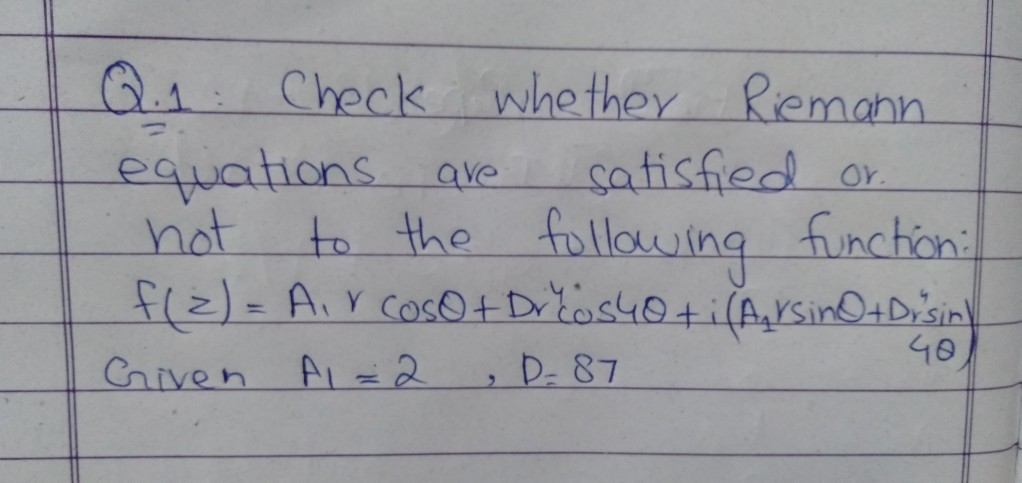 Q.1: Check whether Riemann
equations are satisfied or.
not to the following function:
f(z) = A₁ r cosθ + Dr⁴cos4θ + i(A₁rsinθ+Dr⁴sin
4θ)
Given A1 = 2 , D = 87